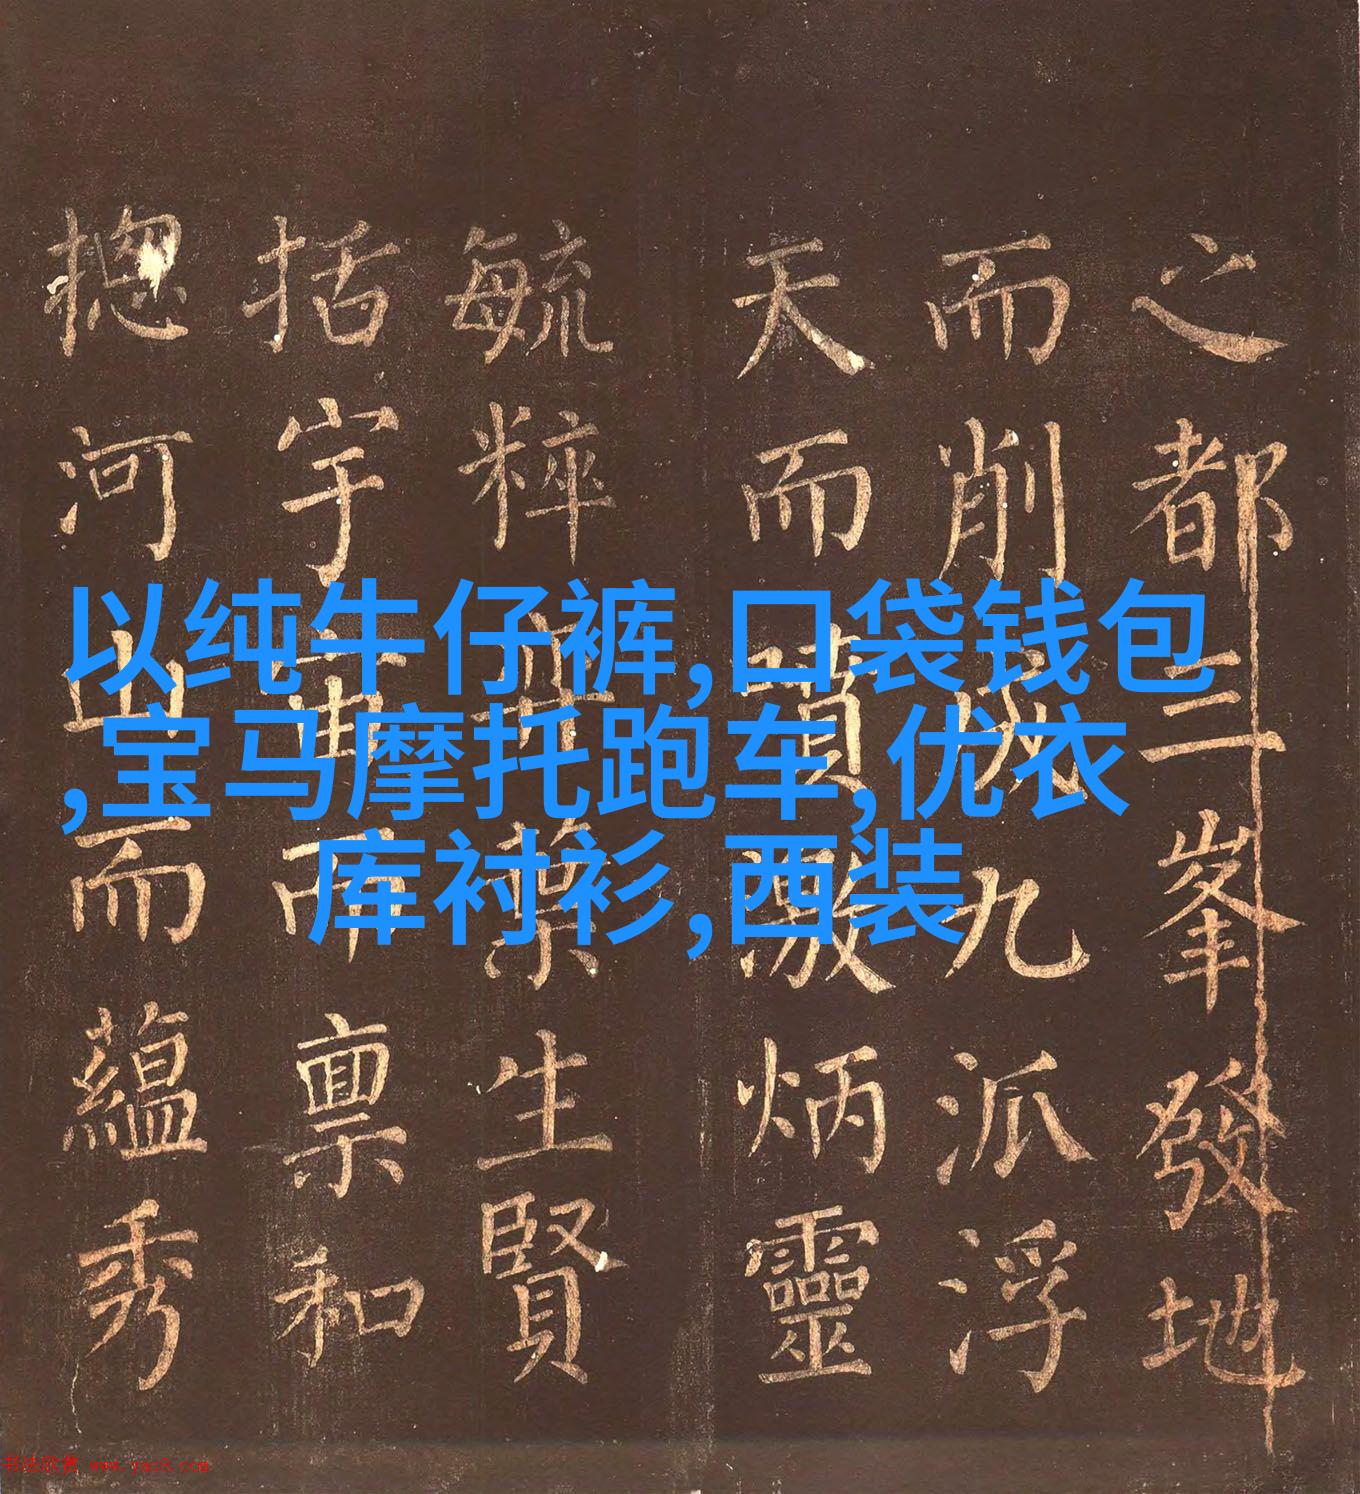 之都三峯發地
而削成九派浮
天而噴激炳靈
毓粹世葉生賢
括宇宙而禀和
摠河山而蘊秀
以纯牛仔裤,口袋钱包
,宝马摩托跑车,优衣
库衬衫,西装
书法欣赏 www.yac8.com